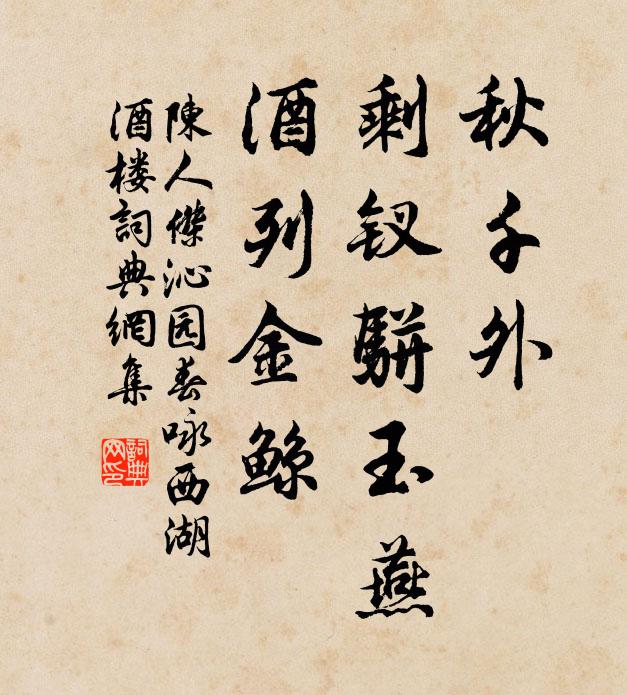 秋千外
剩钗駢玉燕
酒列金鲸
陳人傑沁园春咏西湖
酒楼詞典網集
詞典网印